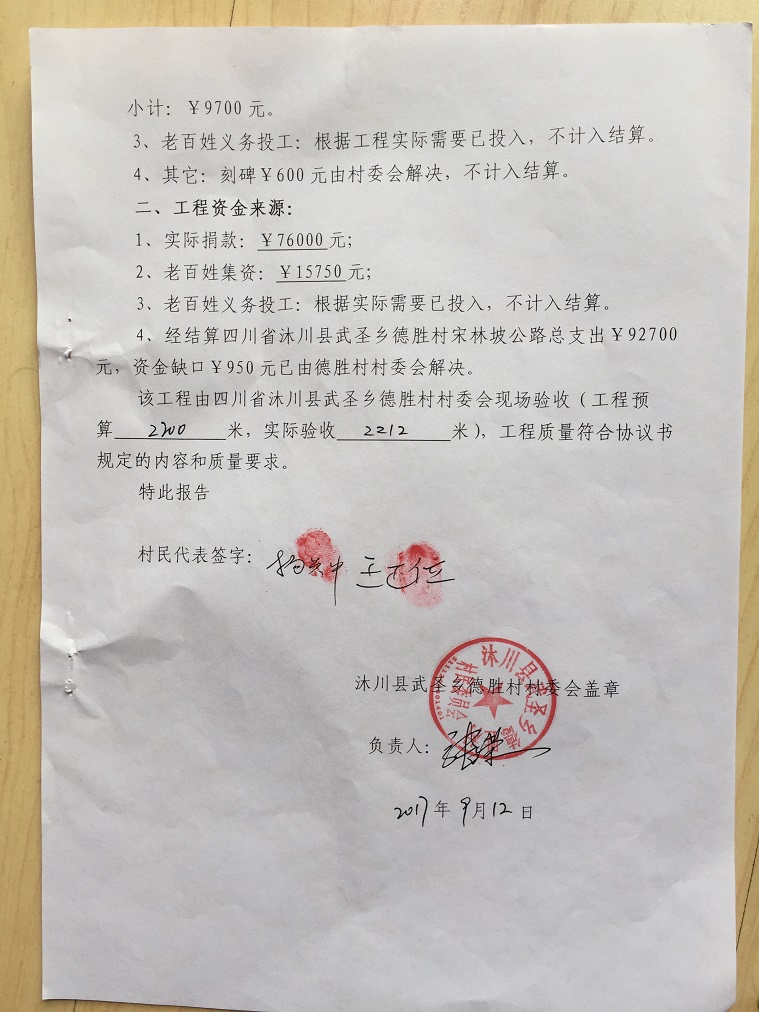 小计：￥9700元。
3、老百姓义务投工：根据工程实际需要已投入，不计入结算。
4、其它：刻碑￥600元由村委会解决，不计入结算。
二、工程资金来源：
1、实际捐款：￥76000元；
2、老百姓集资：￥15750元；
3、老百姓义务投工：根据实际需要已投入，不计入结算。
4、经结算四川省沐川县武圣乡德胜村宋林坡公路总支出￥92700
元，资金缺口￥950元已由德胜村村委会解决。
该工程由四川省沐川县武圣乡德胜村村委会现场验收（工程预
算 2200 米，实际验收 2212 米），工程质量符合协议书
规定的内容和质量要求。
特此报告
村民代表签字：
沐川县武圣乡德
村民委员会
沐川县武圣乡德胜村村委会盖章
负责人：
2017年9月12日